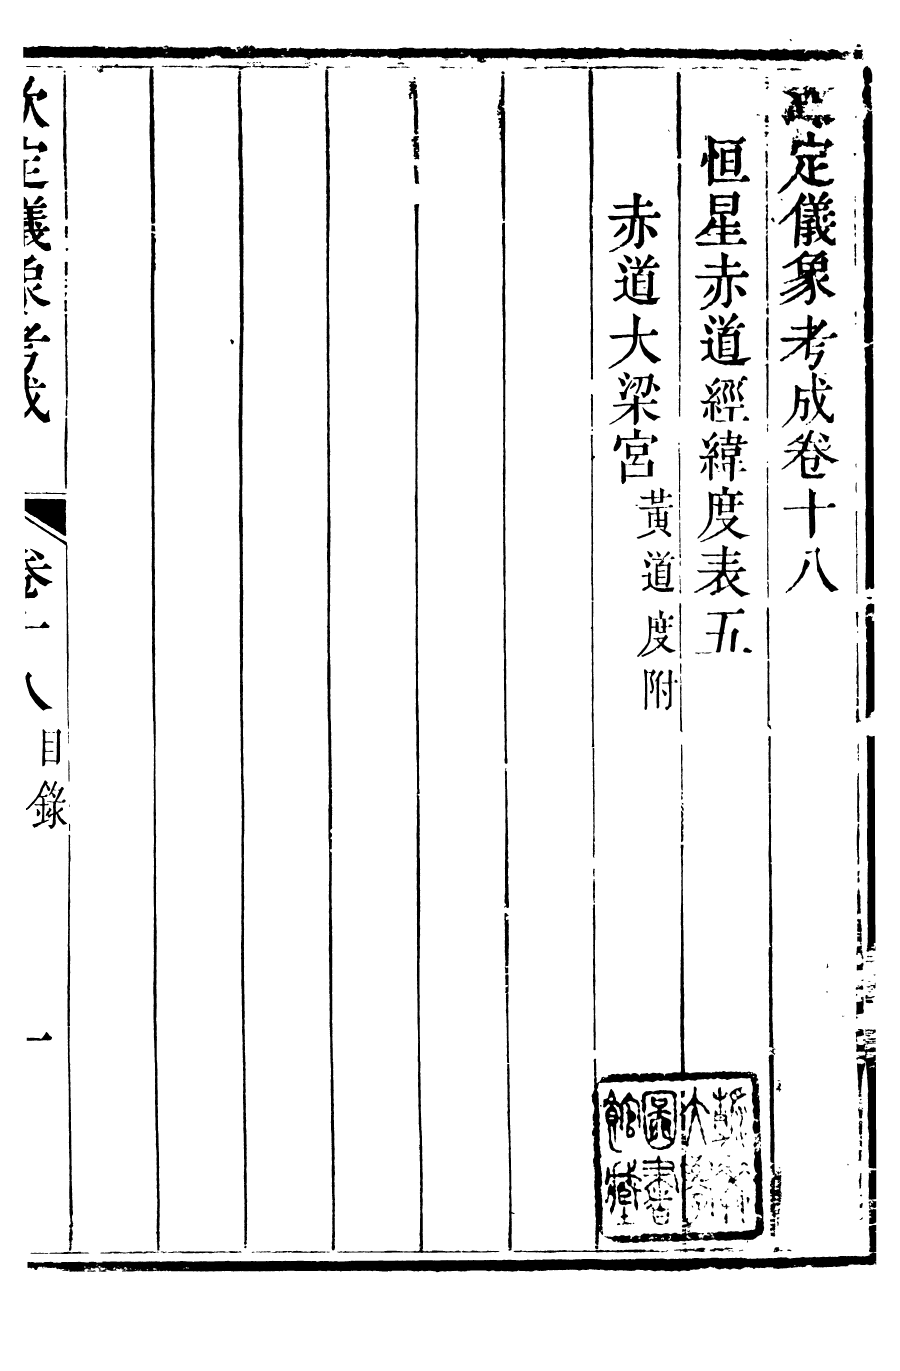 定儀象考成卷十八
恒星赤道經緯度表五
赤道大梁宮黃道度附
欽定儀象考成
卷十八
目錄
一
圖書
館藏